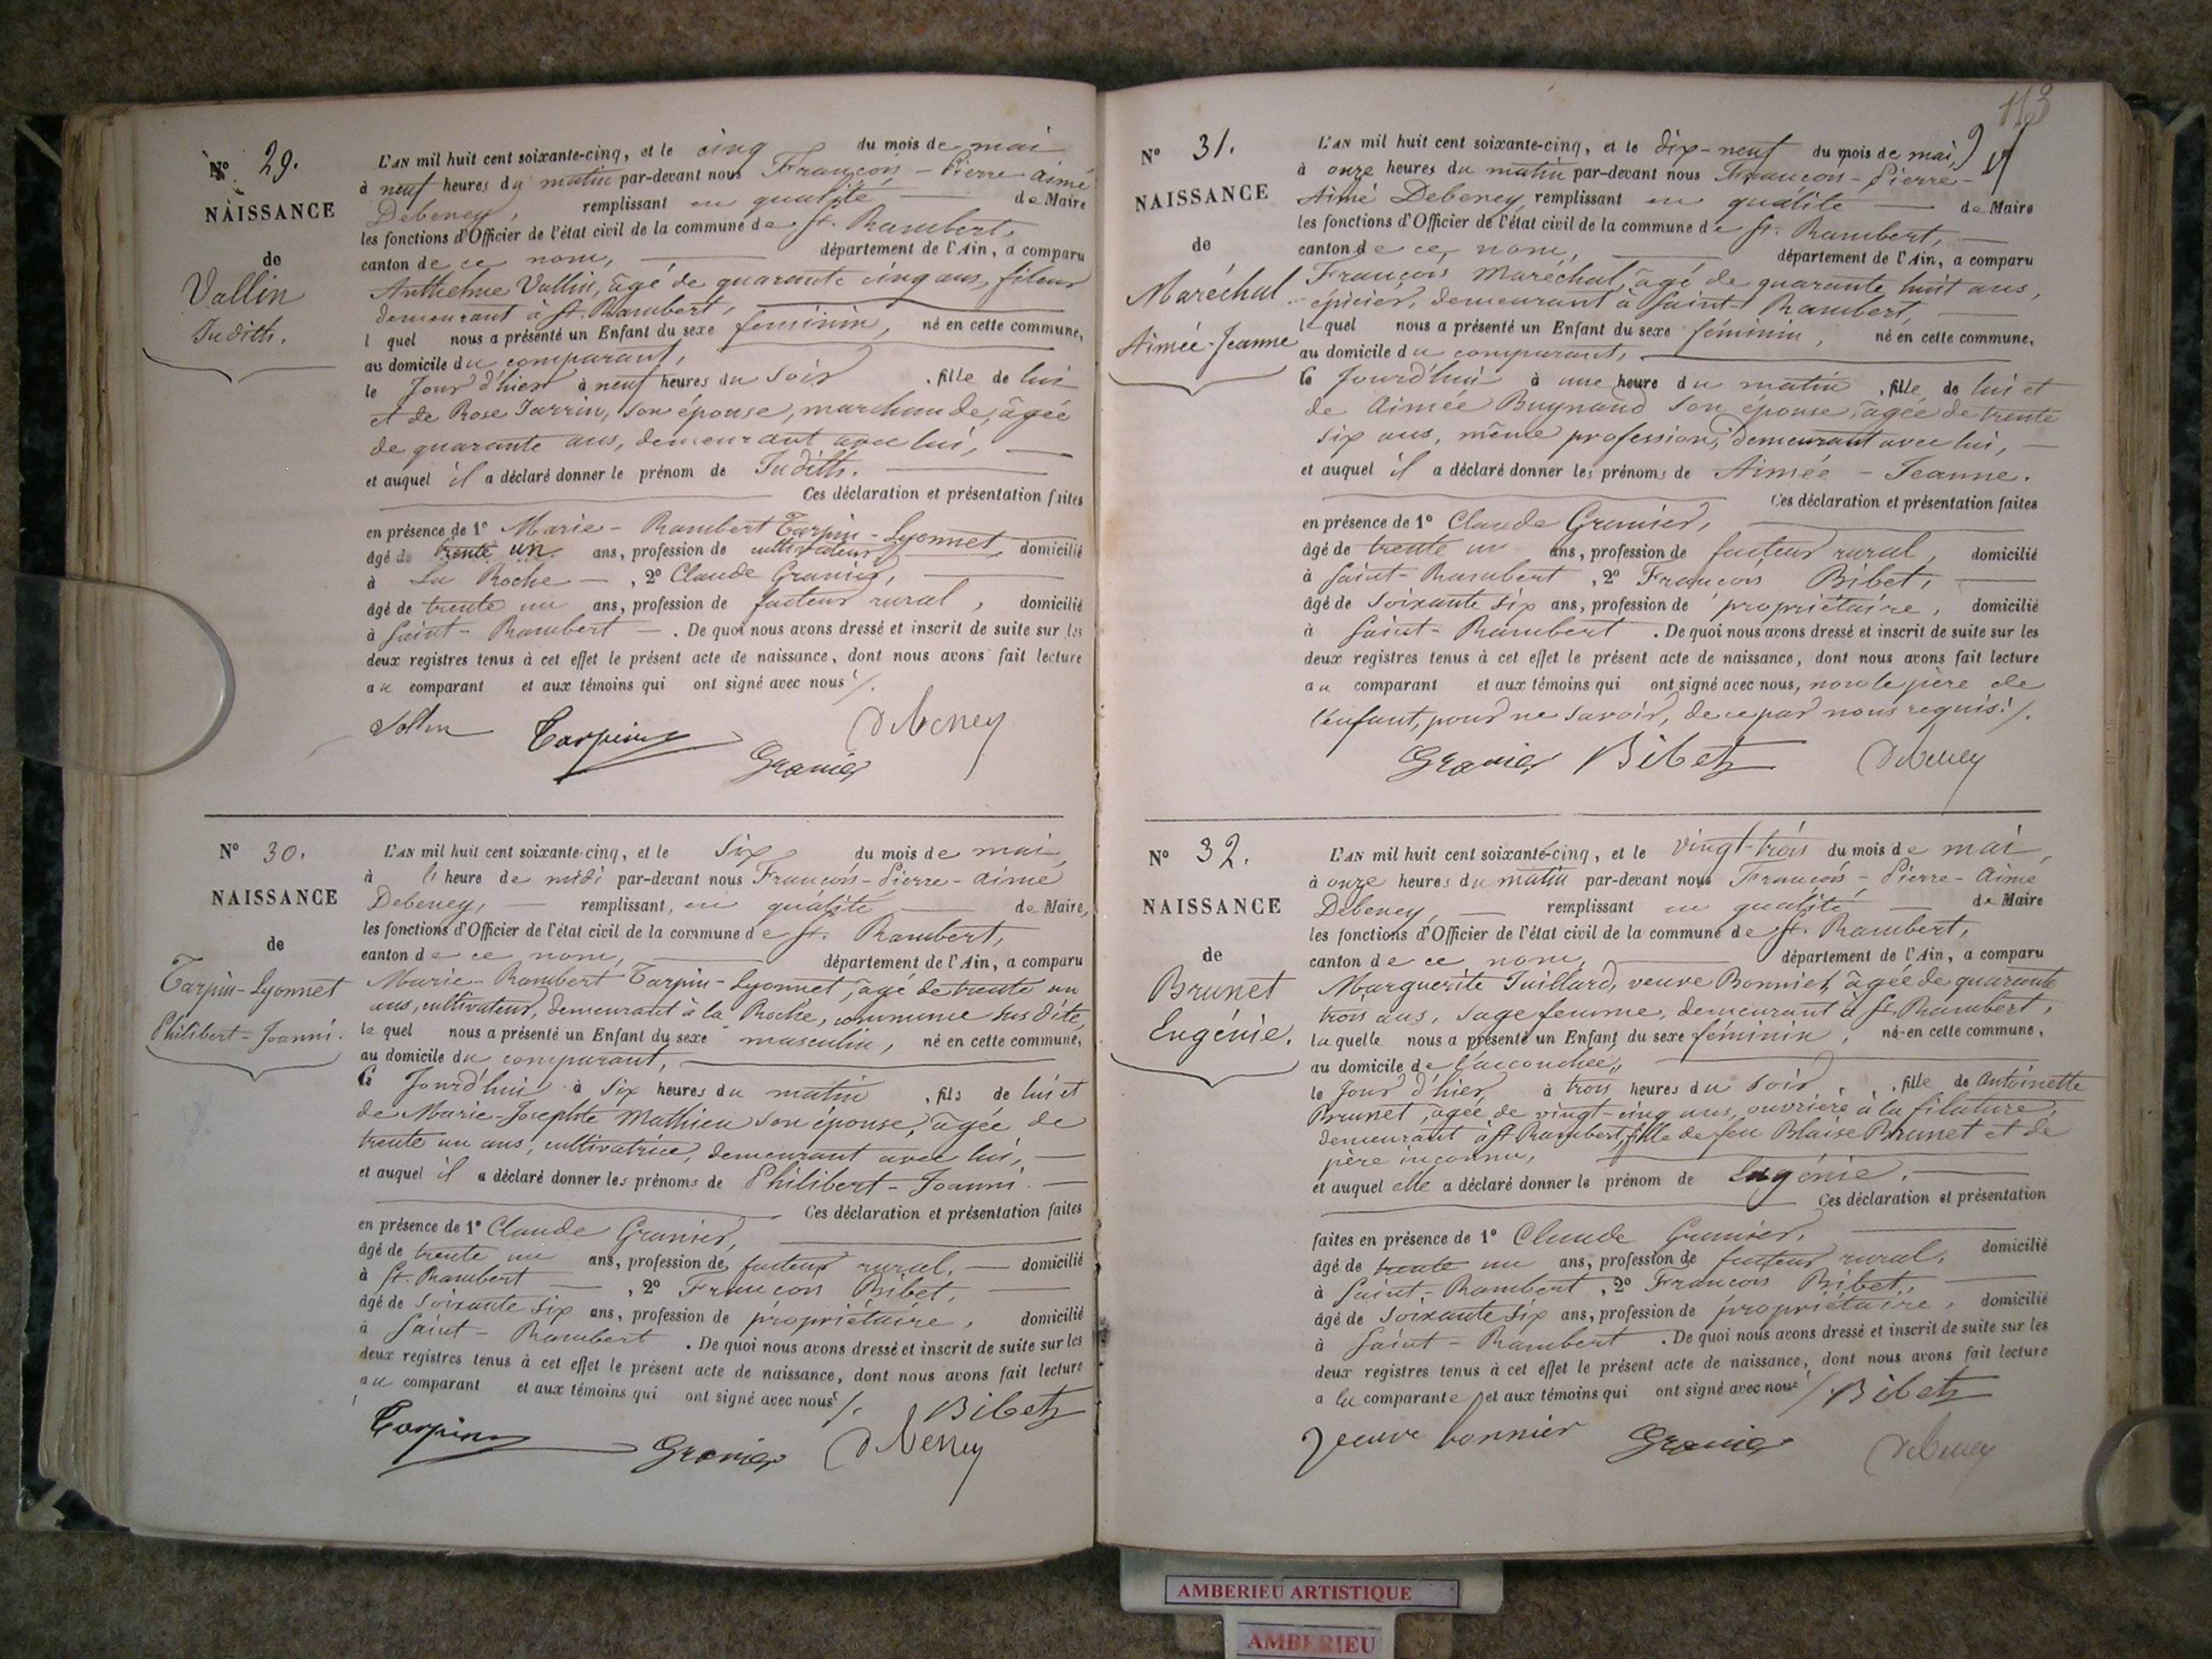 N° 29.
NAISSANCE
de
Vallin
Judith.
L'AN mil huit cent soixante-cinq, et le cinq du mois de mai
à neuf heures du matin par-devant nous François-Pierre-Aimé
Debeney, remplissant en qualité de Maire
les fonctions d'Officier de l'état civil de la commune de St. Rambert,
canton de ce nom, département de l'Ain, a comparu
Anthelme Vallin, âgé de quarante cinq ans, fileur
demeurant à St. Rambert,
l quel nous a présenté un Enfant du sexe féminin, né en cette commune,
au domicile du comparant,
le Jour d'hier à neuf heures du Soir, fille de lui
et de Rose Jarrin, son épouse, marchande, âgée
de quarante ans, demeurant avec lui,
et auquel il a déclaré donner le prénom de Judith.
Ces déclaration et présentation faites
en présence de 1° Marie-Rambert Tarpin-Lyonnet
âgé de trente un ans, profession de cultivateur domicilié
à La Roche, 2° Claude Granier,
âgé de trente un ans, profession de facteur rural, domicilié
à Saint-Rambert. De quoi nous avons dressé et inscrit de suite sur les
deux registres tenus à cet effet le présent acte de naissance, dont nous avons fait lecture
au comparant et aux témoins qui ont signé avec nous ./.
Tarpin Debeney
Granier
N° 30.
NAISSANCE
de
Tarpin-Lyonnet
Philibert-Joanni.
L'AN mil huit cent soixante-cinq, et le Six du mois de mai
à heure de midi par-devant nous François-Pierre-Aimé
Debeney, remplissant, en qualité de Maire,
les fonctions d'Officier de l'état civil de la commune de St. Rambert,
canton de ce nom, département de l'Ain, a comparu
Marie-Rambert Tarpin-Lyonnet, âgé de trente un
ans, cultivateur, demeurant à la Roche, commune sus dite,
le quel nous a présenté un Enfant du sexe masculin, né en cette commune,
au domicile du comparant,
Ce Jourd'hui à Six heures du matin, fils de lui et
de Marie-Josephte Mathieu Son épouse, âgée de
trente un ans, cultivatrice, demeurant avec lui,
et auquel il a déclaré donner les prénoms de Philibert-Joanni.
Ces déclaration et présentation faites
en présence de 1° Claude Granier,
âgé de trente un ans, profession de facteur rural, domicilié
à St. Rambert, 2° François Bibet,
âgé de Soixante Six ans, profession de propriétaire, domicilié
à Saint-Rambert. De quoi nous avons dressé et inscrit de suite sur les
deux registres tenus à cet effet le présent acte de naissance, dont nous avons fait lecture
au comparant et aux témoins qui ont signé avec nous ./.
Bibet
Tarpin Granier Debeney
113
N° 31.
NAISSANCE
de
Maréchal
Aimée-Jeanne
L'AN mil huit cent soixante-cinq, et le dix-neuf du mois de mai,
à onze heures du matin par-devant nous François-Pierre-
Aimé Debeney, remplissant en qualité de Maire
les fonctions d'Officier de l'état civil de la commune de St. Rambert,
canton de ce nom, département de l'Ain, a comparu
François Maréchal, âgé de quarante huit ans,
épicier, demeurant à Saint-Rambert,
lequel nous a présenté un Enfant du sexe féminin, né en cette commune,
au domicile du comparant,
Ce Jourd'hui à une heure du matin, fille de lui et
de Aimée Buynand Son épouse, âgée de trente
Six ans, même profession, demeurant avec lui,
et auquel il a déclaré donner les prénoms de Aimée-Jeanne.
Ces déclaration et présentation faites
en présence de 1° Claude Granier,
âgé de trente un ans, profession de facteur rural, domicilié
à Saint-Rambert, 2° François Bibet,
âgé de Soixante Six ans, profession de propriétaire, domicilié
à Saint-Rambert. De quoi nous avons dressé et inscrit de suite sur les
deux registres tenus à cet effet le présent acte de naissance, dont nous avons fait lecture
au comparant et aux témoins qui ont signé avec nous, non le père de
l'enfant, pour ne savoir, de ce par nous requis ./.
Granier Bibet Debeney
N° 32.
NAISSANCE
de
Brunet
Eugénie.
L'AN mil huit cent soixante-cinq, et le Vingt-trois du mois de mai,
à onze heures du matin par-devant nous François-Pierre-Aimé
Debeney, remplissant en qualité de Maire
les fonctions d'Officier de l'état civil de la commune de St. Rambert,
canton de ce nom, département de l'Ain, a comparu
Marguerite Juillard, veuve Bonnier, âgée de quarante
trois ans, Sage femme, demeurant à St. Rambert,
laquelle nous a présenté un Enfant du sexe féminin, né en cette commune,
au domicile de l'accouchée,
le Jour d'hier, à trois heures du Soir, fille de Antoinette
Brunet, âgée de vingt-cinq ans, ouvrière à la filature,
demeurant à St Rambert, fille de feu Blaise Brunet et de
père inconnu,
et auquel elle a déclaré donner le prénom de Eugénie.
Ces déclaration et présentation
faites en présence de 1° Claude Granier,
âgé de trente un ans, profession de facteur rural, domicilié
à Saint-Rambert, 2° François Bibet,
âgé de Soixante Six ans, profession de propriétaire, domicilié
à Saint-Rambert. De quoi nous avons dressé et inscrit de suite sur les
deux registres tenus à cet effet le présent acte de naissance, dont nous avons fait lecture
a la comparante et aux témoins qui ont signé avec nous ./. Bibet
veuve bonnier Granier Debeney
AMBERIEU ARTISTIQUE
AMBERIEU